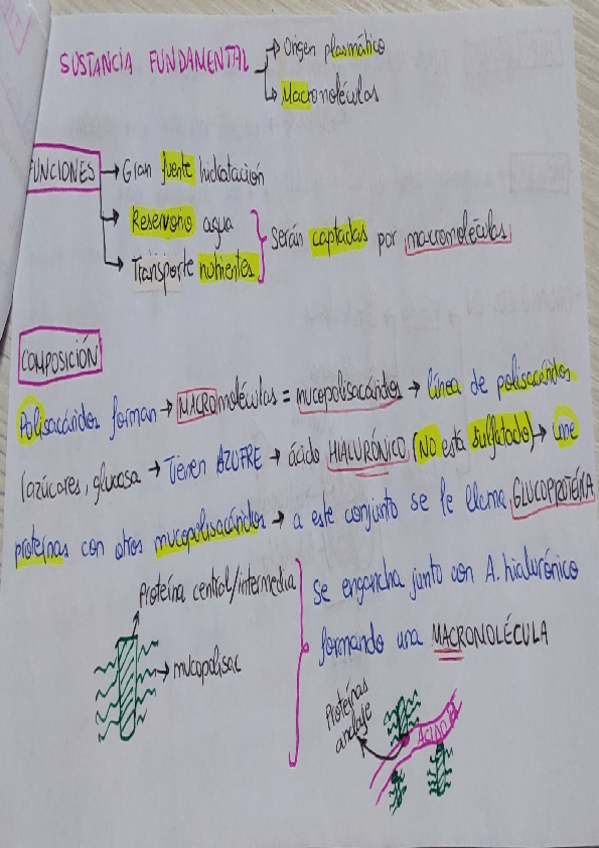 SUSTANCIA FUNDAMENTAL → Origen plasmático
↳ Macromoléculas
FUNCIONES → Gran fuente hidratación
→ Reservorio agua
→ Transporte nutrientes } Serán captadas por macromoléculas
COMPOSICIÓN
Polisacáridos forman → MACROmoléculas = mucopolisacáridos → línea de polisacáridos
(azúcares, glucosa → Tienen AZUFRE → ácido HIALURÓNICO (NO está sulfatado) → une
proteínas con otros mucopolisacáridos → a este conjunto se le llama GLUCOPROTEÍNA
Proteína central/intermedia
→ mucopolisac
Se engancha junto con A. hialurónico
formando una MACROMOLÉCULA
Proteínas
anclaje
ÁCIDO H